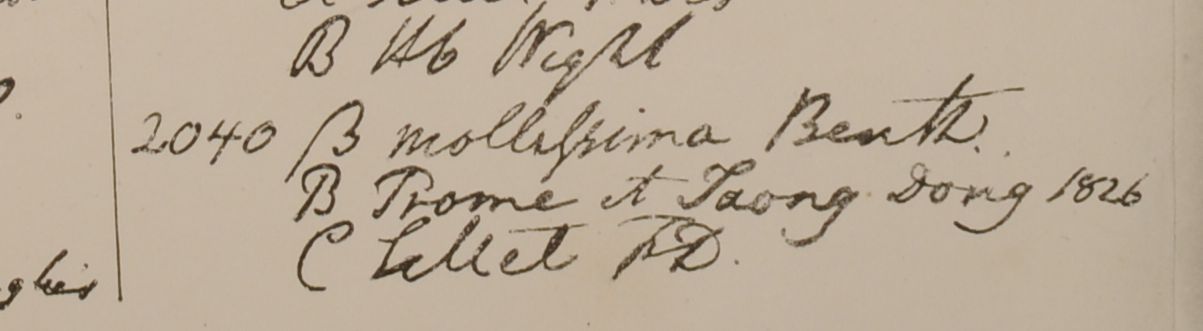 B Hb Wight
2040 β mollissima Benth.
B Prome et Taong Dong 1826
C Sillet FD.